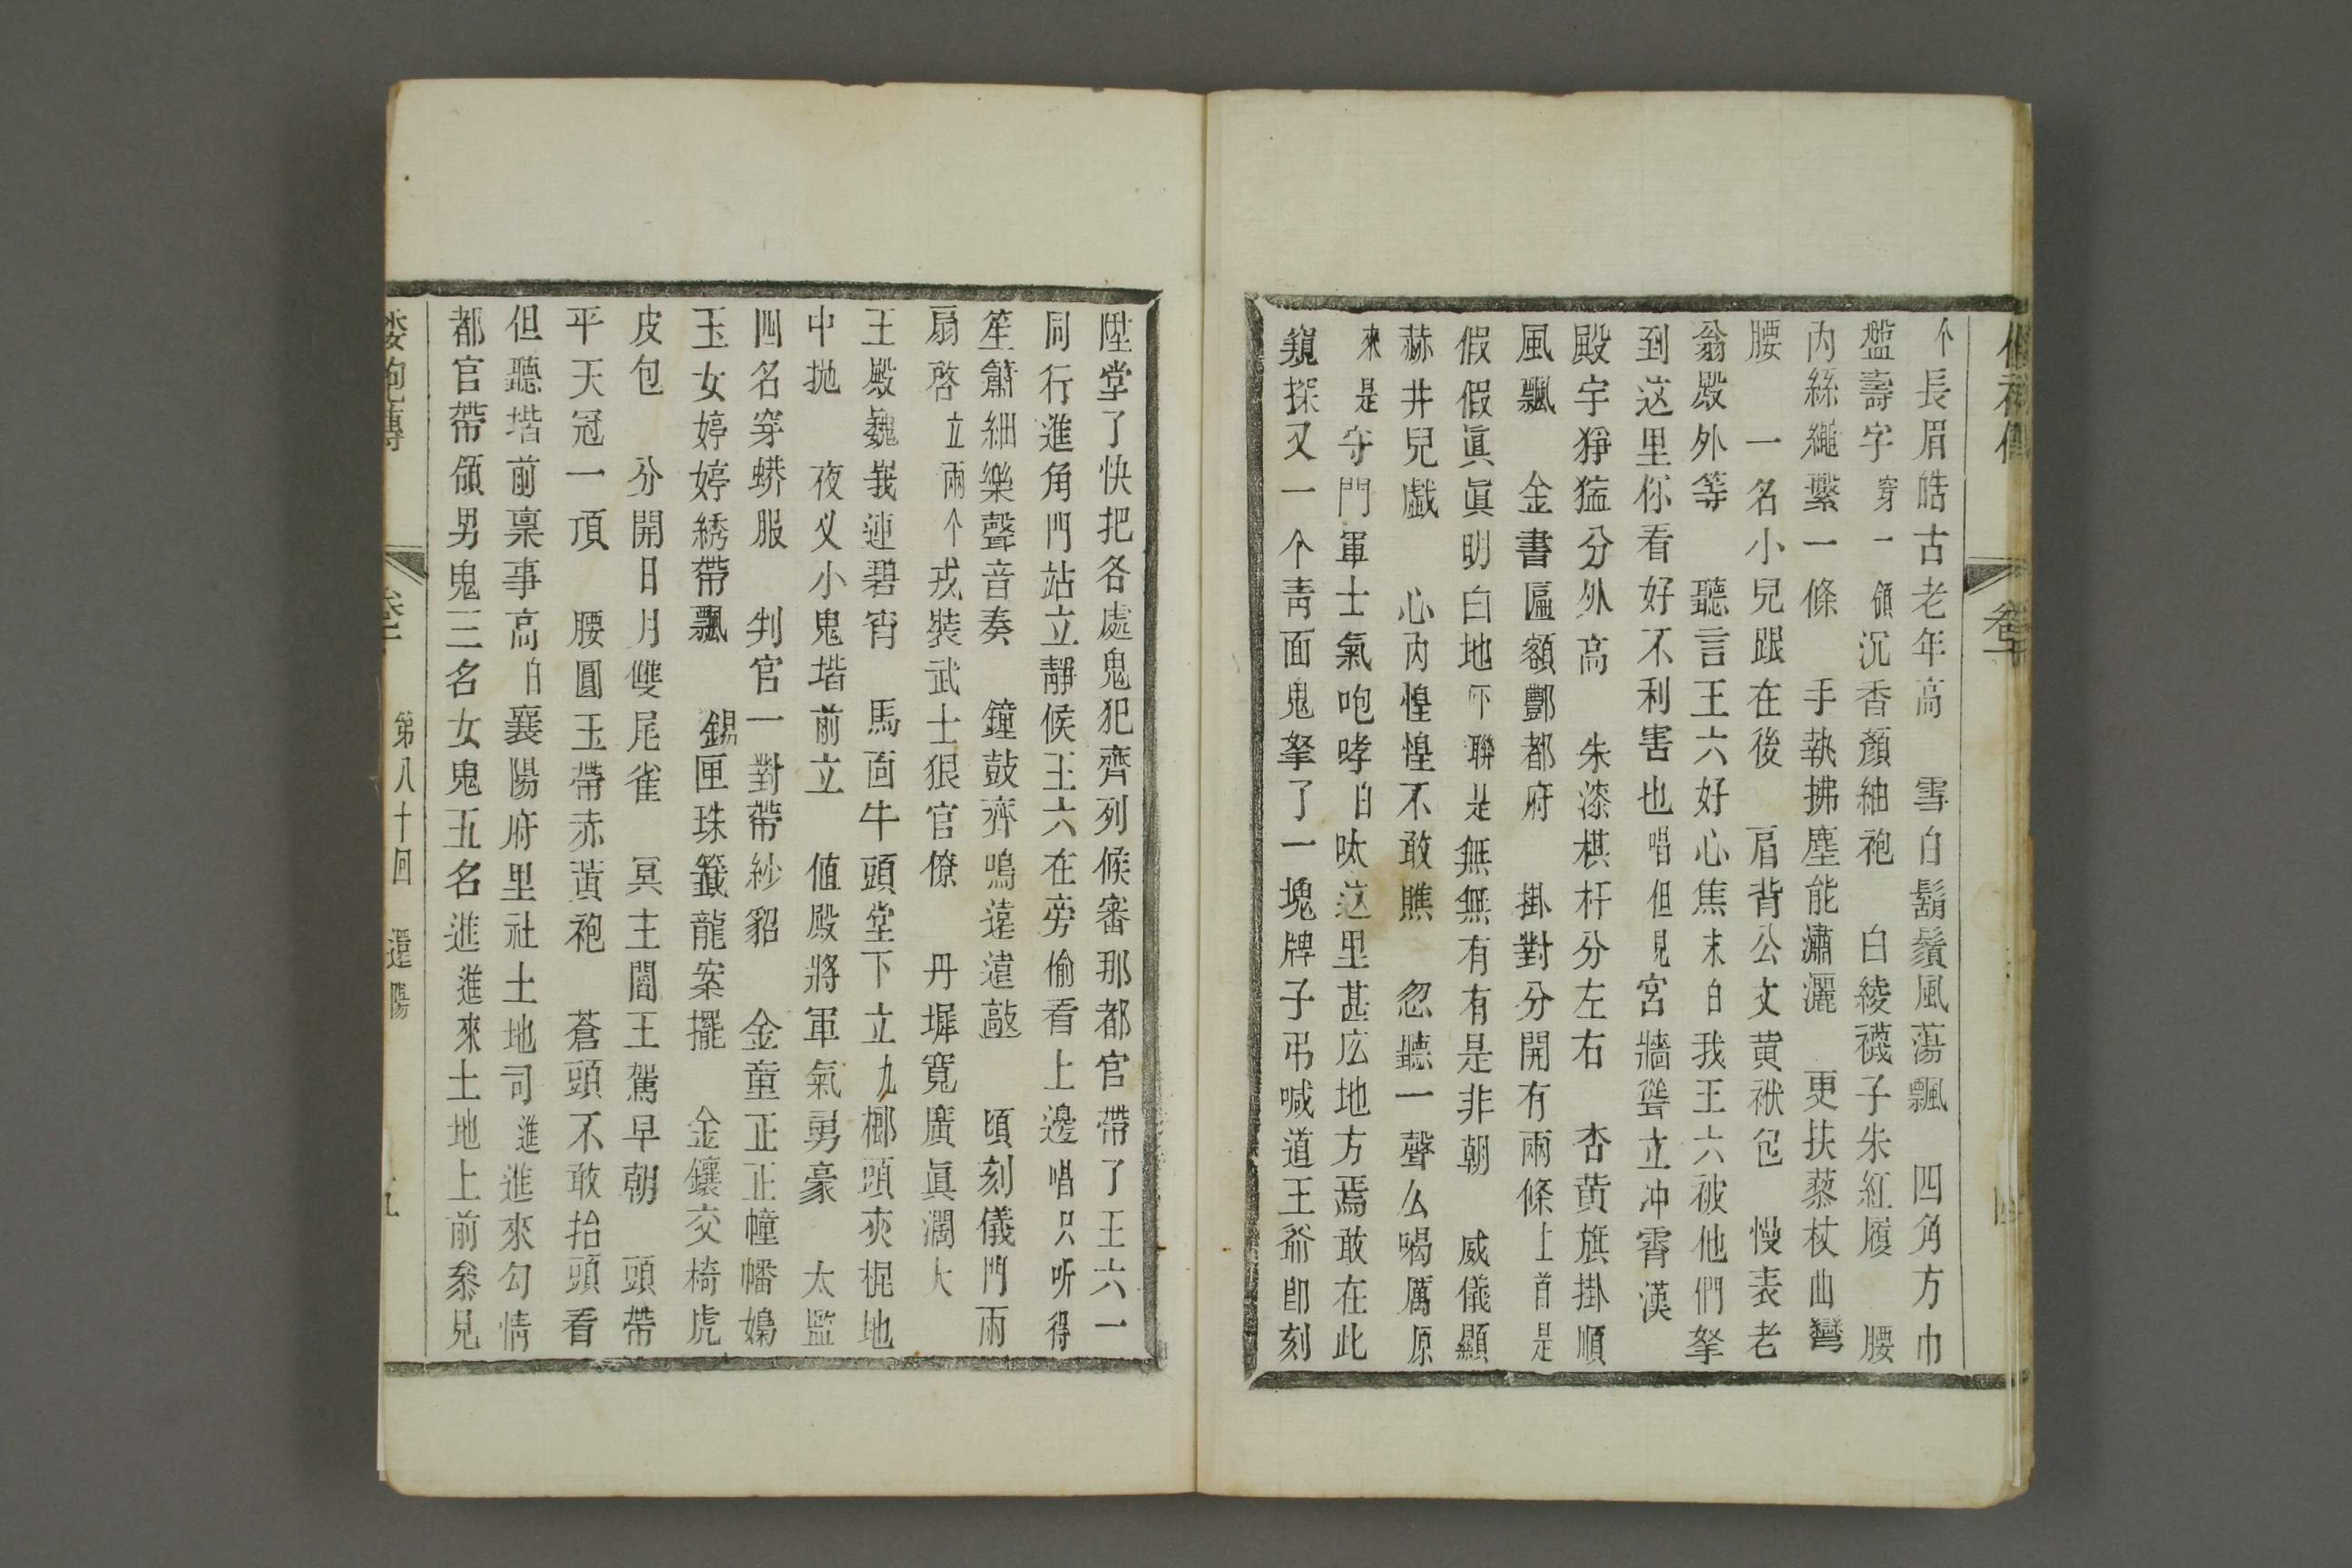 个長眉皓古老年高　雪白鬍鬚風蕩飄　四角方巾
盤壽字穿一領沉香顏紬袍　白綾襪子朱紅履　腰
內絲繩繫一條　手執拂塵能瀟灑　更扶藜杖曲彎
腰　一名小兒跟在後　肩背公文黃袱包　慢表老
翁殿外等　聽言王六好心焦末白我王六被他們拏
到这里你看好不利害也唱但見宮牆聳立冲霄漢
殿宇猙猛分外高　朱漆棋杆分左右　杏黃旗掛順
風飄　金書匾額酆都府　掛對分開有兩條上首是
假假眞眞明白地下聯是無無有有是非朝　威儀顯
赫井兒戯　心內惶惶不敢瞧　忽聽一聲么喝厲原
來是守門軍士氣咆哮白呔这里甚庅地方焉敢在此
窺探又一个靑面鬼拏了一塊牌子弔喊道王爺卽刻
陞堂了快把各處鬼犯齊列候審那都官帶了王六一
同行進角門站立靜候王六在旁偷看上邊唱只听得
笙簫細樂聲音奏　鐘鼓齊鳴遠遠敲　頃刻儀門兩
扇啓立兩个戎裝武士狠官僚　丹墀寬廣眞濶大
王殿巍峩連碧霄　馬面牛頭堂下立九榔頭夾棍地
中抛　夜义小鬼堦前立　値殿將軍氣勇豪　太監
四名穿蟒服　判官一對帶紗貂　金童正正幢幡嬝
玉女婷婷綉帶飄　錫匣珠籤龍案擺　金鑲交椅虎
皮包　分開日月雙尾雀　冥主閻王駕早朝　頭帶
平天冠一頂　腰圓玉帶赤黃袍　蒼頭不敢抬頭看
但聽堦前禀事高白襄陽府里社土地司進進來勾情
都官帶領男鬼三名女鬼五名進進來土地上前叅見
袍傳　第八十回　還陽